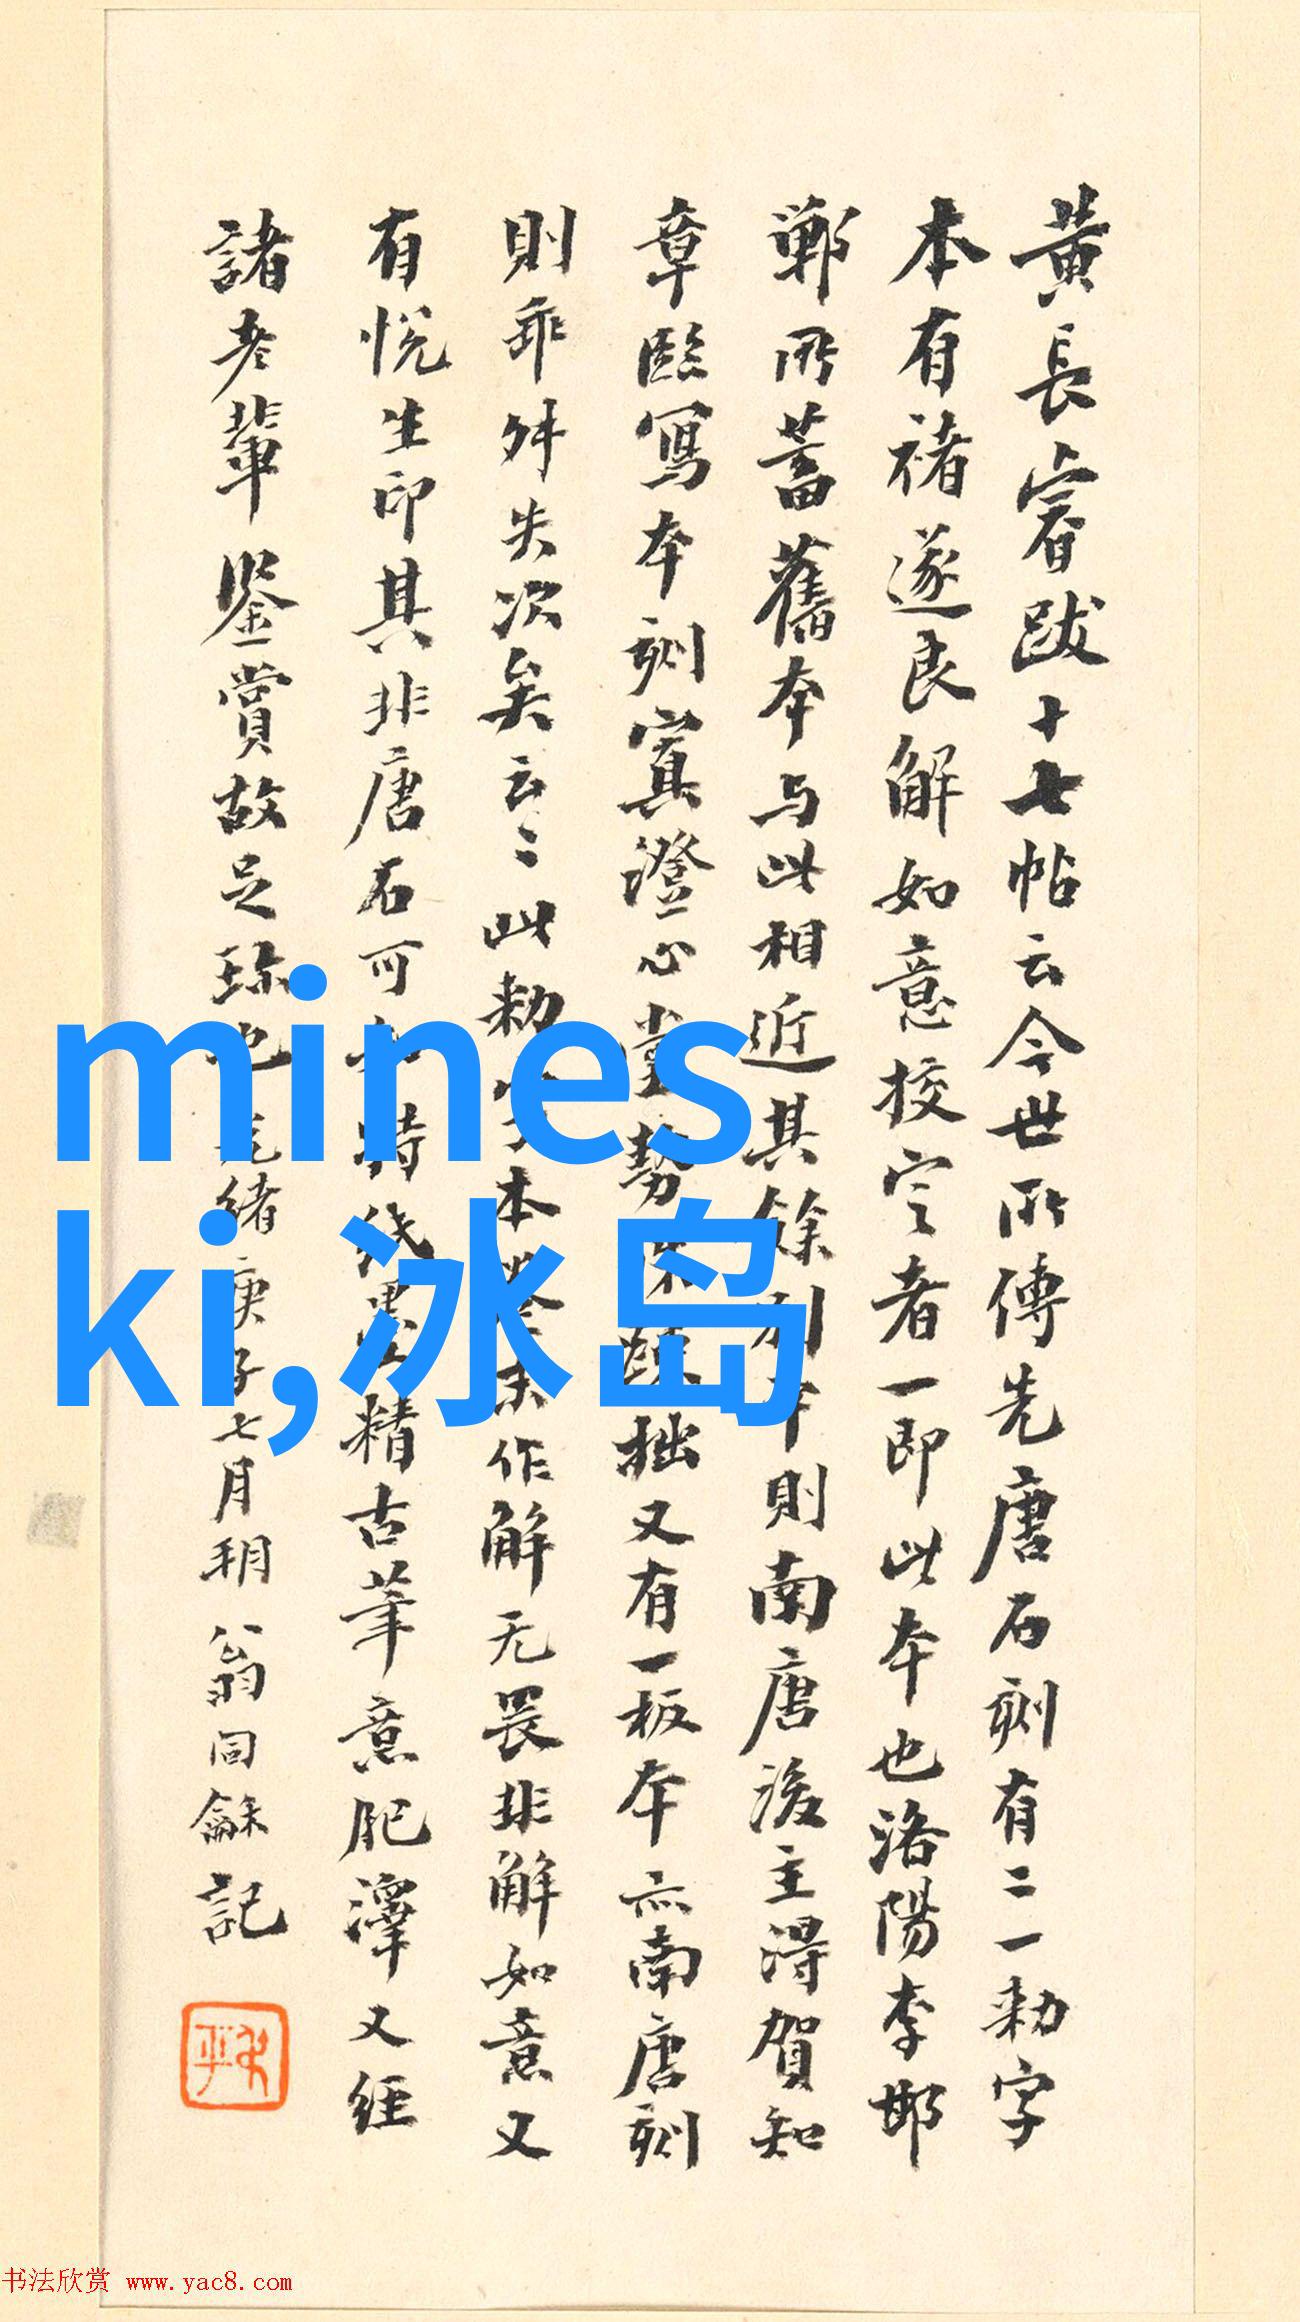 黃長睿跋十七帖云今世所傳先唐石刻有二一勅字
本有褚遂良解如意挍定者一即此本也洛陽李邯
鄲所蓄舊本与此相近其餘別本則南唐後主得賀知
章臨寫本刻寘澄心堂勢 疎拙又有一板本亦南唐刻
則乖舛失次矣云〻此勅字本卷末作解无畏非解如意又
有悅生印其非唐石可知 特 墨精古筆意肥澤又經
諸老輩鑒賞故足珎也光緒庚子七月朔翁同龢記
mines
ki,冰岛
书法欣赏 www.yac8.com